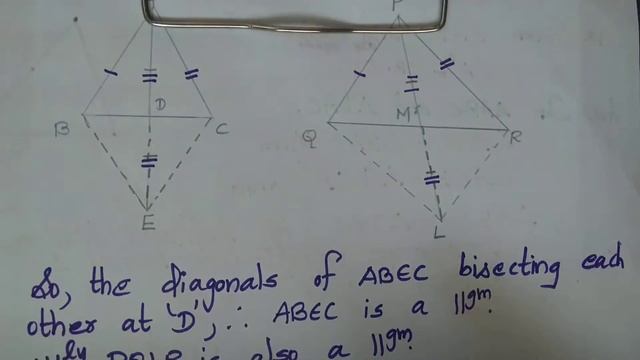 P
D
M
B
C
Q
R
E
L
So, the diagonals of ABEC bisecting each
other at 'D', ∴ ABEC is a ||gm.
is also a ||gm.